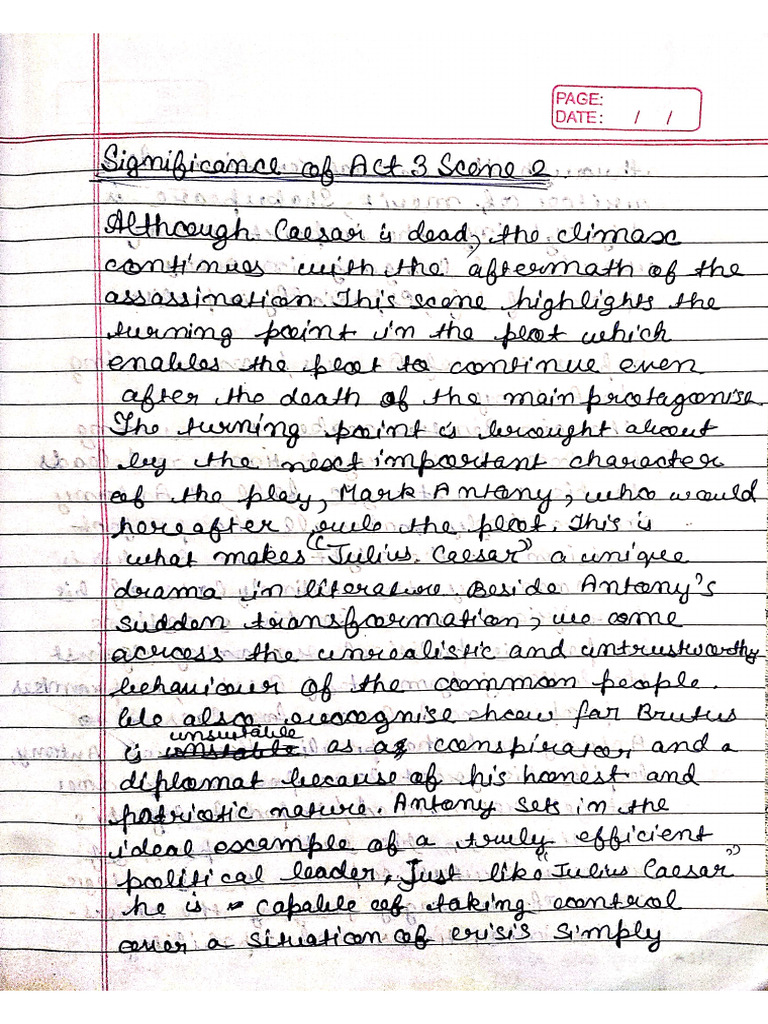 PAGE:
DATE: / /
Significance of Act 3 Scene 2
Although Caesar is dead, the climax
continues with the aftermath of the
assassination. This scene highlights the
turning point in the plot which
enables the plot to continue even
after the death of the main protagonist.
The turning point is brought about
by the next important character
of the play, Mark Antony, who would
hereafter rule the plot. This is
what makes "Julius Caesar" a unique
drama in literature. Beside Antony's
sudden transformation, we come
across the unrealistic and untrustworthy
behaviour of the common people.
We also recognise how far Brutus
is unsuitable as a conspirator and a
diplomat because of his honest and
patriotic nature. Antony sets in the
ideal example of a truly efficient
political leader, Just like "Julius Caesar"
he is capable of taking control
over a situation of crisis simply